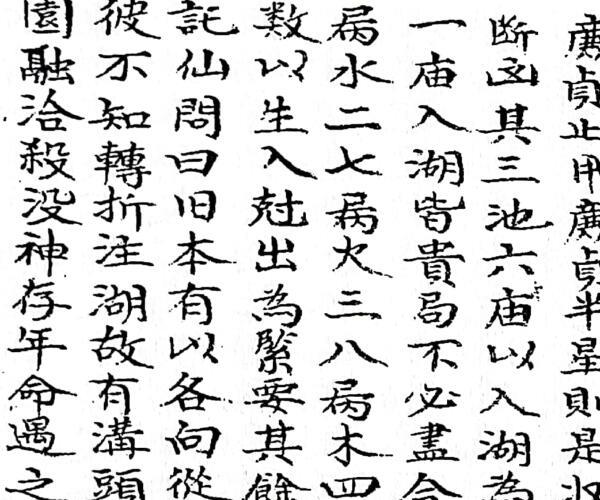 廣貞止甲廣貞半星則是
断凶其三池六庙以入湖為
一庙入湖皆貴局不必盡合
病水二七病火三八病木四
数以生入尅出為緊要其餘
託仙問曰旧本有以各向從
彼不知轉折注湖故有溝頭
園融洽殺没神存年命遇之